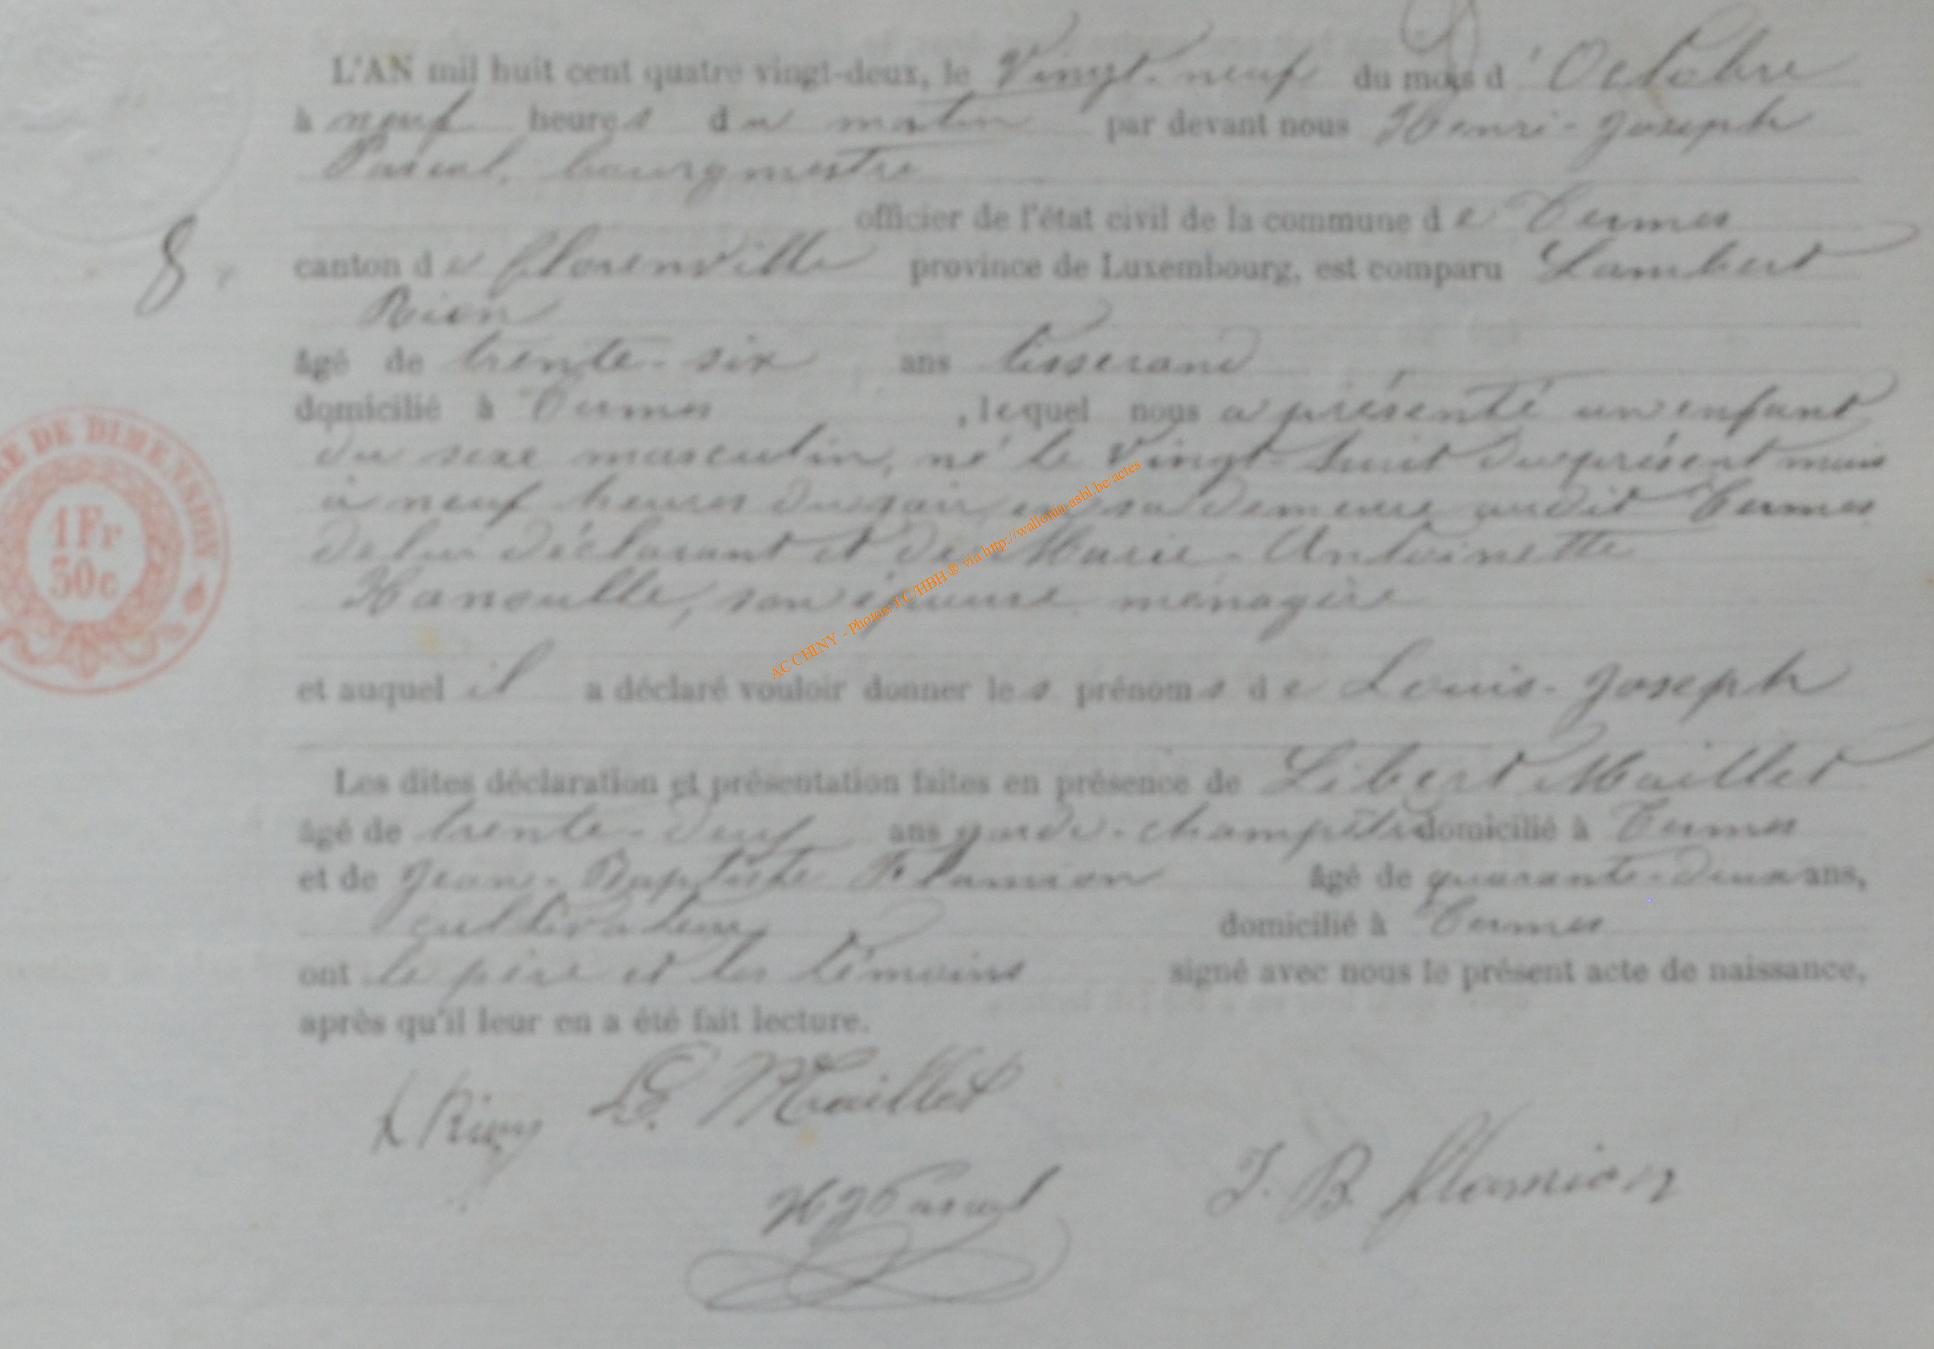 L'AN mil huit cent quatre vingt-deux, le Vingt-neuf du mois d'Octobre
à neuf heures du matin par devant nous Henri-Joseph
Pascal, bourgmestre
officier de l'état civil de la commune de Termes
8.
canton de florenville province de Luxembourg, est comparu Lambert
Rion
âgé de trente-six ans tisserand
domicilié à Termes, lequel nous a présenté un enfant
du sexe masculin, né le Vingt-huit du présent mois
à neuf heures du soir, en sa demeure audit Termes
de lui déclarant et de Marie-Antoinette
son épouse ménagère
et auquel il a déclaré vouloir donner les prénoms de Louis-Joseph
Les dites déclaration et présentation faites en présence de Libert Maillet
âgé de trente-neuf ans garde-champêtre domicilié à Termes
et de Jean-Baptiste Flamion âgé de quarante-deux ans,
cultivateur domicilié à Termes
ont le père et les témoins signé avec nous le présent acte de naissance,
après qu'il leur en a été fait lecture.
L Rion L. Maillet
HJPascal J. B. flamion
RE DE DIMENSION
1Fr
50c
AC CHINY - Photos TC/HBH ® via http://wallonia-asbl.be/actes